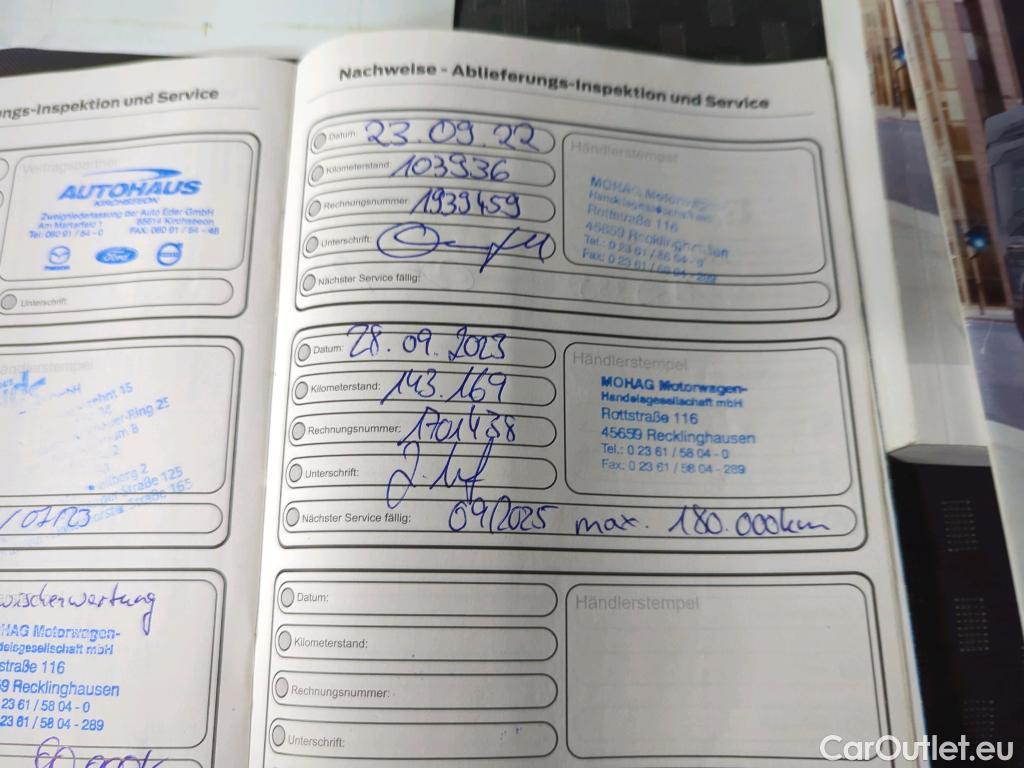 ngs-Inspektion und Service
Vertragspartner
AUTOHAUS
KIRCHSEEON
Zweigniederlassung der Auto Eder GmbH
Am Marterfeld 1 85614 Kirchseeon
Tel: 080 91 / 54 - 0 FAX: 080 91 / 54 - 48
mazda Ford VOLVO
Unterschrift:
Händlerstempel
/ 07/23
wischerwartung
HAG Motorwagen-
delsgesellschaft mbH
straße 116
9 Recklinghausen
2 3 61 / 58 04 - 0
23 61 / 58 04 - 289
Nachweise - Ablieferungs-Inspektion und Service
Datum: 23.09.22
Kilometerstand: 103936
Rechnungsnummer: 1939459
Unterschrift:
Nächster Service fällig:
Händlerstempel
MOHAG Motorwagen-
Handelsgesellschaft mbH
Rottstraße 116
45659 Recklinghausen
Tel.: 0 23 61 / 58 04 - 0
Fax: 0 23 61 / 58 04 - 289
Datum: 28.09.2023
Kilometerstand: 143.169
Rechnungsnummer: 1701438
Unterschrift:
Händlerstempel
MOHAG Motorwagen-
Handelsgesellschaft mbH
Rottstraße 116
45659 Recklinghausen
Tel.: 0 23 61 / 58 04 - 0
Fax: 0 23 61 / 58 04 - 289
Nächster Service fällig: 09/2025 max. 180.000km
Datum:
Kilometerstand:
Rechnungsnummer:
Unterschrift:
Händlerstempel
CarOutlet.eu